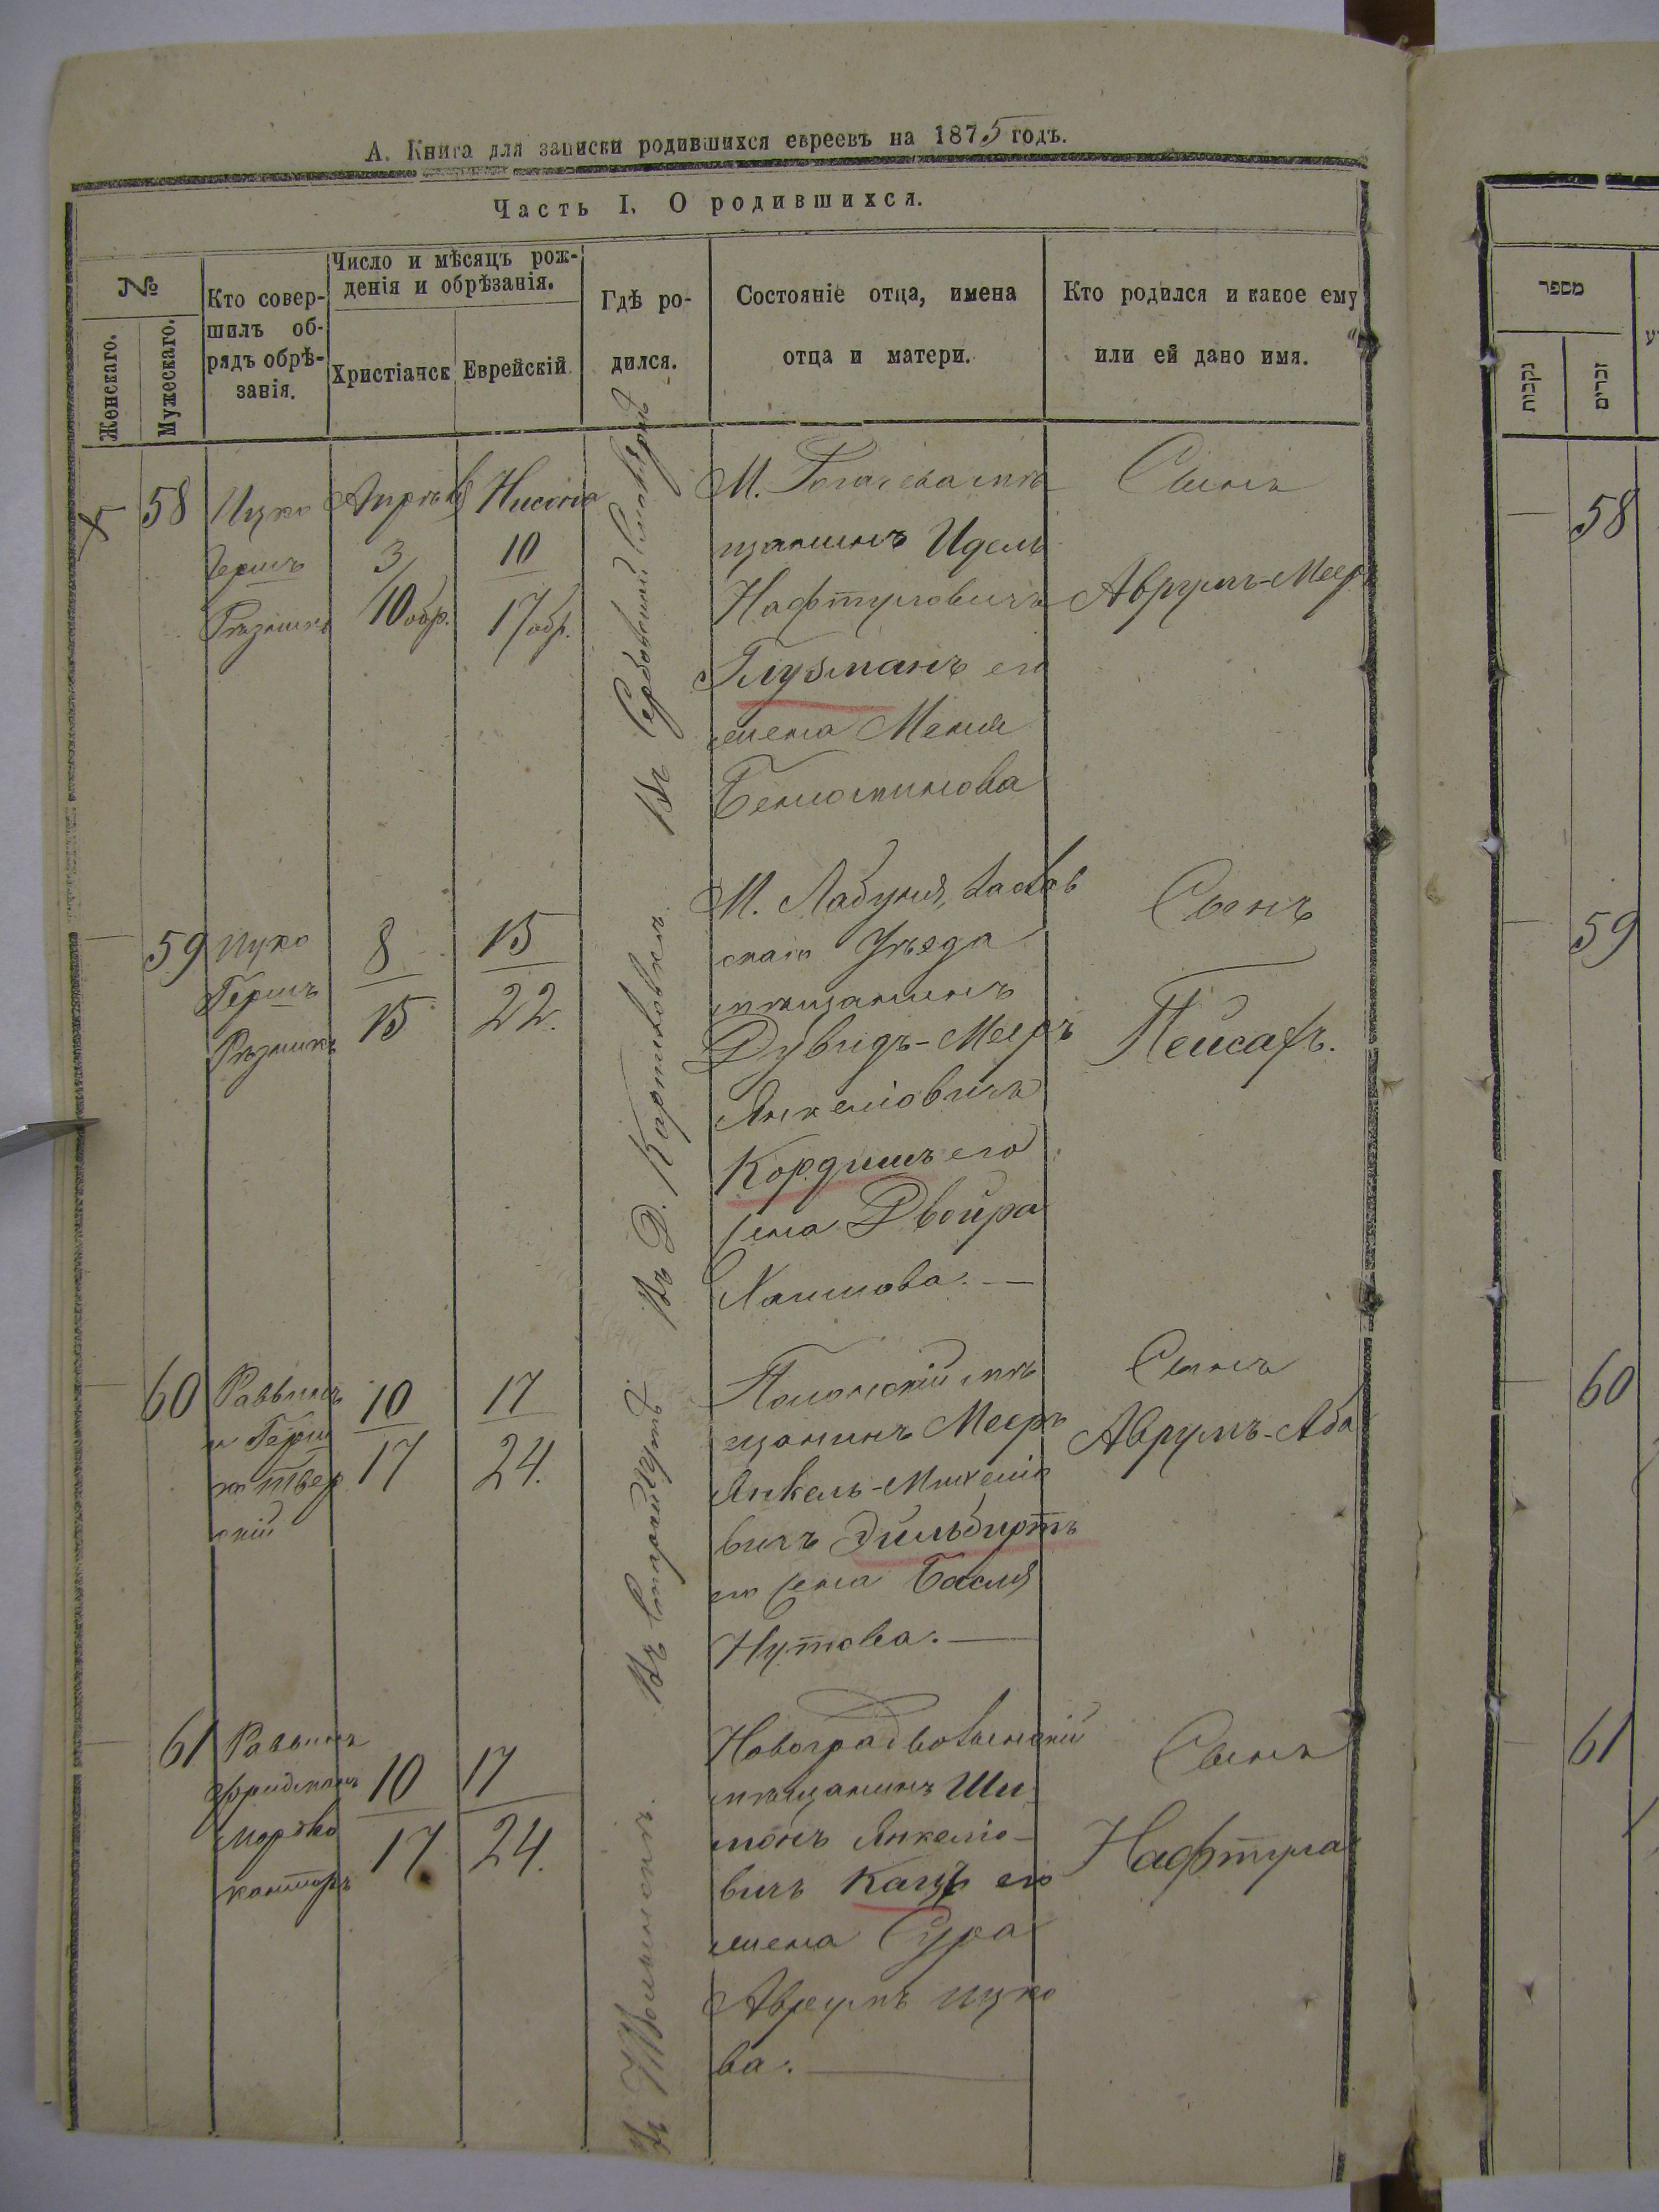 А. Книга для записки родившихся евреевъ на 1875 годъ.
Часть I. О родившихся.
№
Женскаго.
Мужескаго.
Кто совер-
шилъ об-
рядъ обрѣ-
занія.
Число и мѣсяцъ рож-
денія и обрѣзанія.
Христіанск
Еврейскій
Гдѣ ро-
дился.
Состояніе отца, имена
отца и матери.
Кто родился и какое ему
или ей дано имя.
מספר
נקבות
זכרים
58
Ицко
Гершъ
Рѣзникъ
3
10 обр.
Нисона
10
17 обр.
Въ
М.
щанинъ Идель
Нафтуловичъ
Глузманъ его
жена Меня
Бениоминова
Сынъ
Аврумъ-Меер
58
59
Ицко
Гершъ
Рѣзникъ
8
15
15
22.
Въ Д.
М. Лабуня, Заслав
скаго Уѣзда
мѣщанинъ
Дувидъ-Мееръ
Янкеліовичъ
Кордишъ его
жена Двойра
Хаимова. —
Сынъ
Пейсахъ.
59
60
Раввинъ
и Герш
ко Твер
скій
10
17
17
24.
Въ
Полонскій мѣ
щанинъ Мееръ
Янкель-Михеліо
вичъ Эйльбиртъ
его жена Бася
Нутова. —
Сынъ
Аврумъ-Аба
60
61
Раввинъ
Фридманъ
Мордко
канторъ
10
17
17
24.
Новоградволынскій
мѣщанинъ Ши
монъ Янкеліо-
вичъ Кацъ его
жена Сура
Аврумъ Ицко
ва. —
Сынъ
Нафтула
61